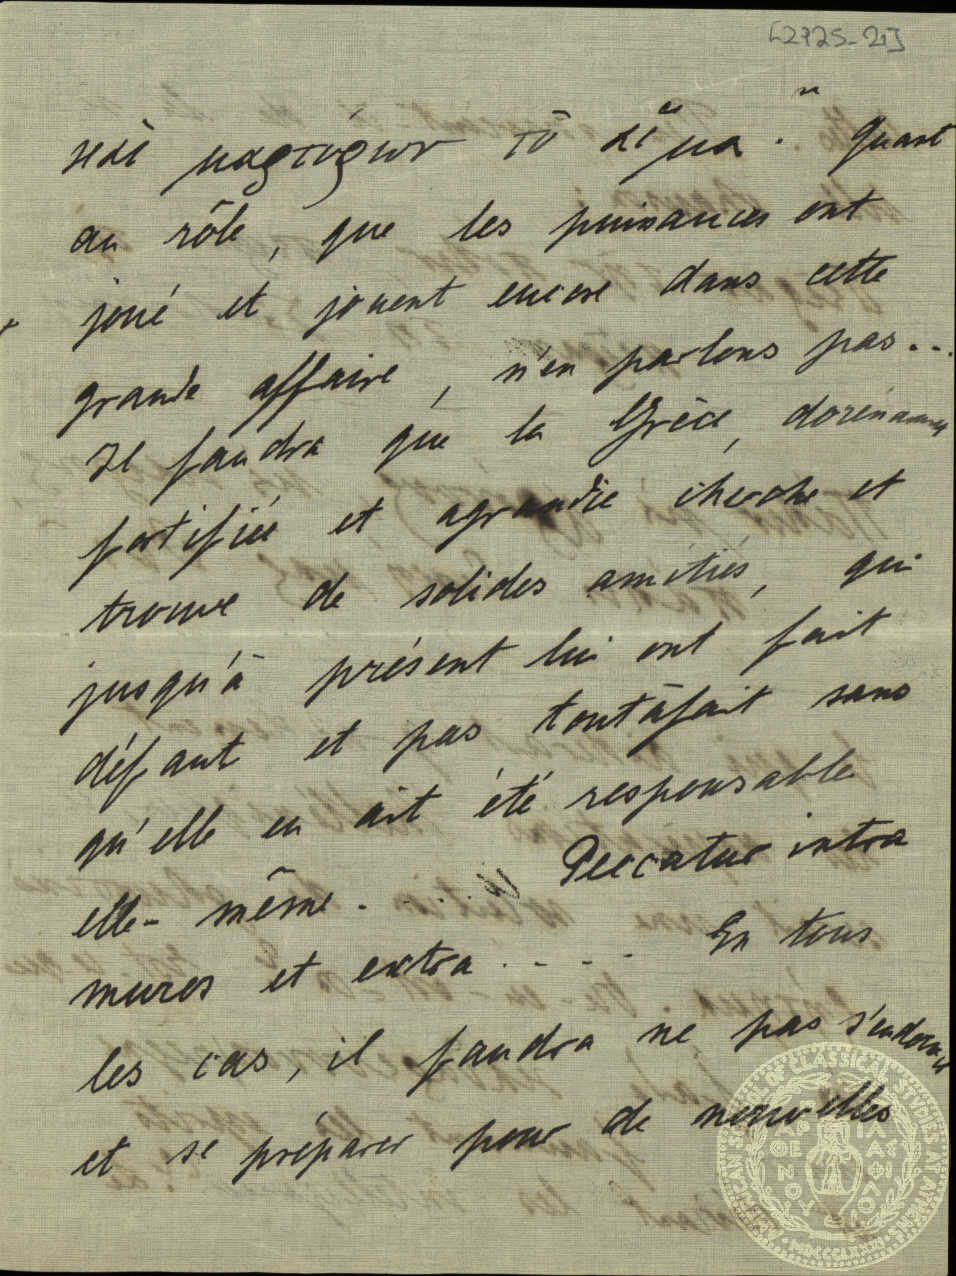 [2725-21]
καὶ μαρτύρων τὸ αἷμα." Quant
au rôle, que les puissances ont
joué et jouent encore dans cette
grande affaire, n'en parlons pas...
Il faudra que la Grèce, dorénavant
fortifiée et agrandie cherche et
trouve de solides amitiés, qui
jusqu'à présent lui ont fait
défaut et pas toutàfait sans
qu'elle en ait été responsable
elle-même. . . . Peccatur intra
muros et extra . . . . . En tous
les cas, il faudra ne pas s'endormir
et se préparer pour de nouvelles
AMERICAN SCHOOL OF CLASSICAL STUDIES AT ATHENS
ΠΑΡΘΕΝΟΥ ΦΙΛΑΣ ΦΙΛΟΙ
MDCCCLXXXI